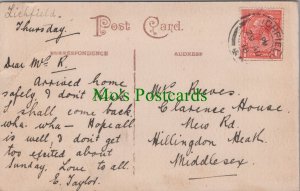 Lichfield
Thursday.
POST CARD.
CORRESPONDENCE
ADDRESS
Dear Mrs R.
Arrived home
safely, I don't think
I shall come back,
wha- wha- Hope all
is well, I don't get
too excited about
Sunday, Love to all
E. Taylor.
Mrs Reeves.
Clarence House
New Rd
Hillingdon Heath
Middlesex.
Mo's Postcards